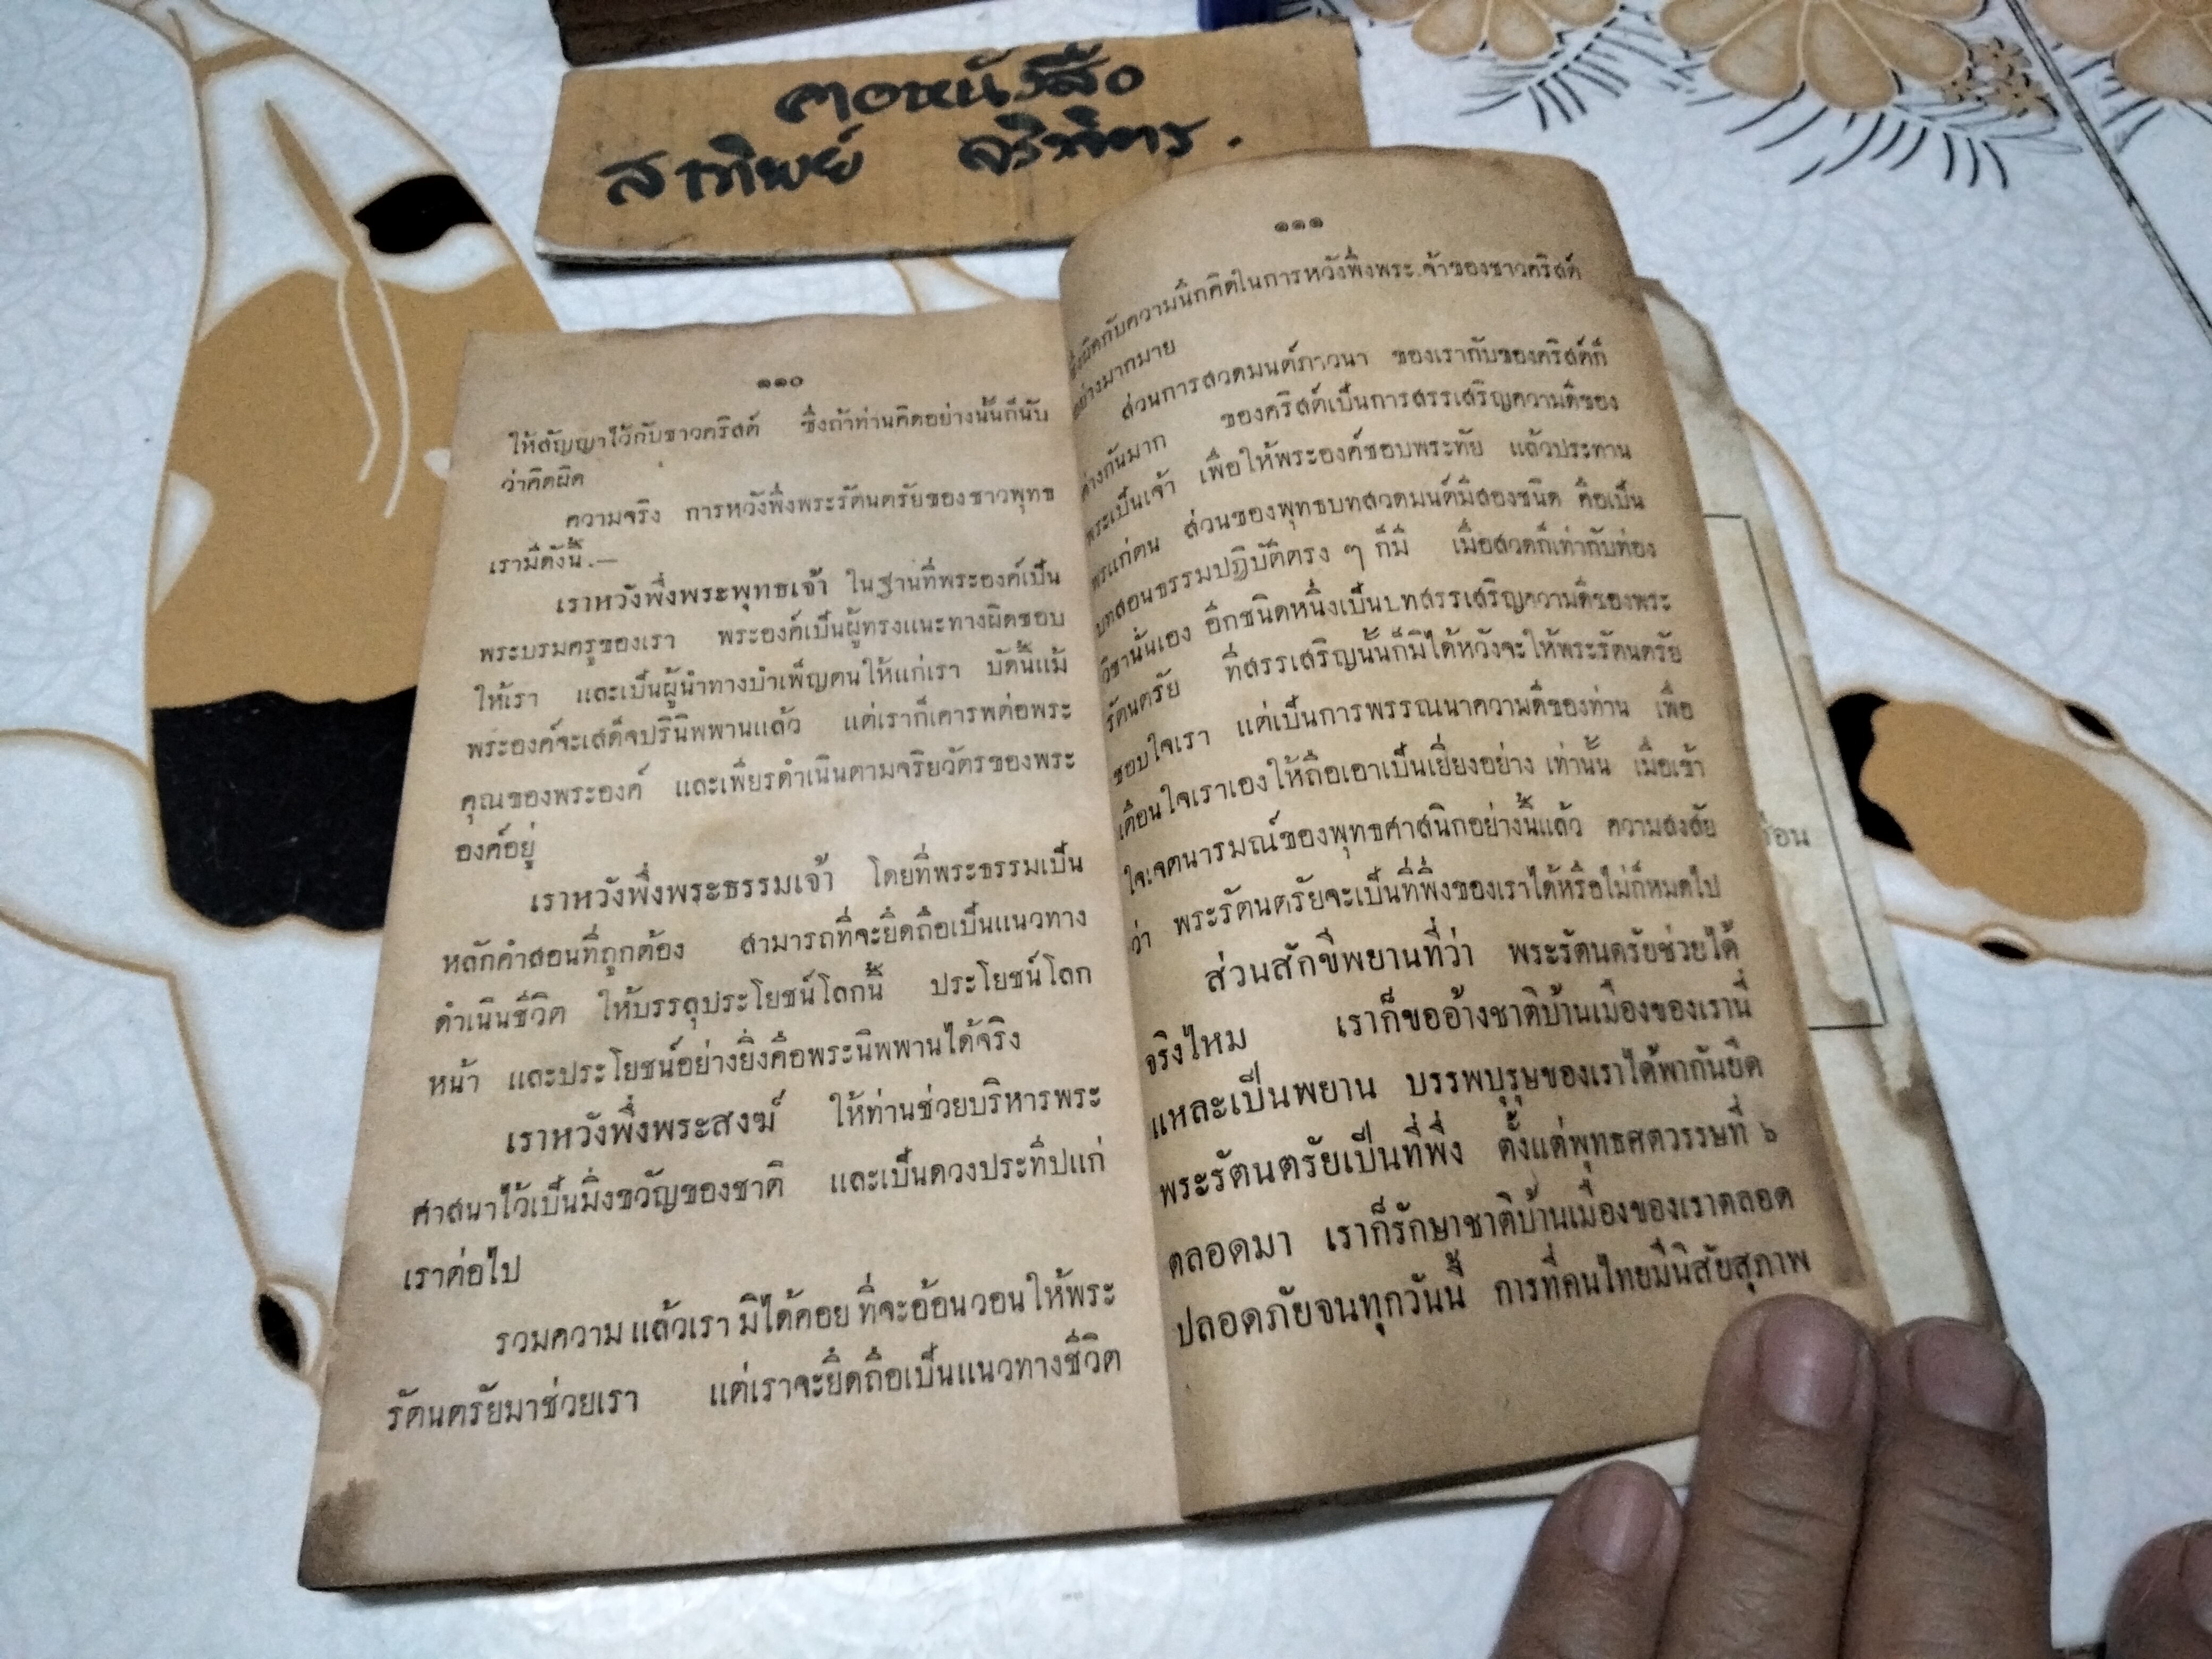 คอหนังสือ
สาทิพย์
๑๑๐
ให้สัญญาไว้กับชาวคริสต์ ซึ่งถ้าท่านคิดอย่างนั้นก็นับ
ว่าคิดผิด
ความจริง การหวังพึ่งพระรัตนตรัยของชาวพุทธ
เรามีดังนี้.—
เราหวังพึ่งพระพุทธเจ้า ในฐานที่พระองค์เป็น
พระบรมครูของเรา พระองค์เป็นผู้ทรงแนะทางผิดชอบ
ให้เรา และเป็นผู้นำทางบำเพ็ญตนให้แก่เรา บัดนี้แม้
พระองค์จะเสด็จปรินิพพานแล้ว แต่เราก็เคารพต่อพระ
คุณของพระองค์ และเพียรดำเนินตามจริยวัตรของพระ
องค์อยู่
เราหวังพึ่งพระธรรมเจ้า โดยที่พระธรรมเป็น
หลักคำสอนที่ถูกต้อง สามารถที่จะยึดถือเป็นแนวทาง
ดำเนินชีวิต ให้บรรลุประโยชน์โลกนี้ ประโยชน์โลก
หน้า และประโยชน์อย่างยิ่งคือพระนิพพานได้จริง
เราหวังพึ่งพระสงฆ์ ให้ท่านช่วยบริหารพระ
ศาสนาไว้เป็นมิ่งขวัญของชาติ และเป็นดวงประทีปแก่
เราต่อไป
รวมความแล้วเรามิได้คอยที่จะอ้อนวอนให้พระ
รัตนตรัยมาช่วยเรา แต่เราจะยึดถือเป็นแนวทางชีวิต
๑๑๑
ซึ่งผิดกับความนึกคิดในการหวังพึ่งพระเจ้าของชาวคริสต์
อย่างมากมาย
ส่วนการสวดมนต์ภาวนา ของเรากับของคริสต์ก็
ต่างกันมาก ของคริสต์เป็นการสรรเสริญความดีของ
พระเป็นเจ้า เพื่อให้พระองค์ชอบพระทัย แล้วประทาน
พรแก่ตน ส่วนของพุทธบทสวดมนต์มีสองชนิด คือเป็น
บทสอนธรรมปฏิบัติตรง ๆ ก็มี เมื่อสวดก็เท่ากับท่อง
วิชานั่นเอง อีกชนิดหนึ่งเป็นบทสรรเสริญความดีของพระ
รัตนตรัย ที่สรรเสริญนั้นก็มิได้หวังจะให้พระรัตนตรัย
ชอบใจเรา แต่เป็นการพรรณนาความดีของท่าน เพื่อ
เตือนใจเราเองให้ถือเอาเป็นเยี่ยงอย่าง เท่านั้น เมื่อเข้า
ใจเจตนารมณ์ของพุทธศาสนิกอย่างนี้แล้ว ความสงสัย
ว่า พระรัตนตรัยจะเป็นที่พึ่งของเราได้หรือไม่ก็หมดไป
ส่วนสักขีพยานที่ว่า พระรัตนตรัยช่วยได้
จริงไหม เราก็ขออ้างชาติบ้านเมืองของเรานี้
แหละเป็นพยาน บรรพบุรุษของเราได้พากันยึด
พระรัตนตรัยเป็นที่พึ่ง ตั้งแต่พุทธศตวรรษที่ ๖
ตลอดมา เราก็รักษาชาติบ้านเมืองของเราตลอด
ปลอดภัยจนทุกวันนี้ การที่คนไทยมีนิสัยสุภาพ
ร่อน